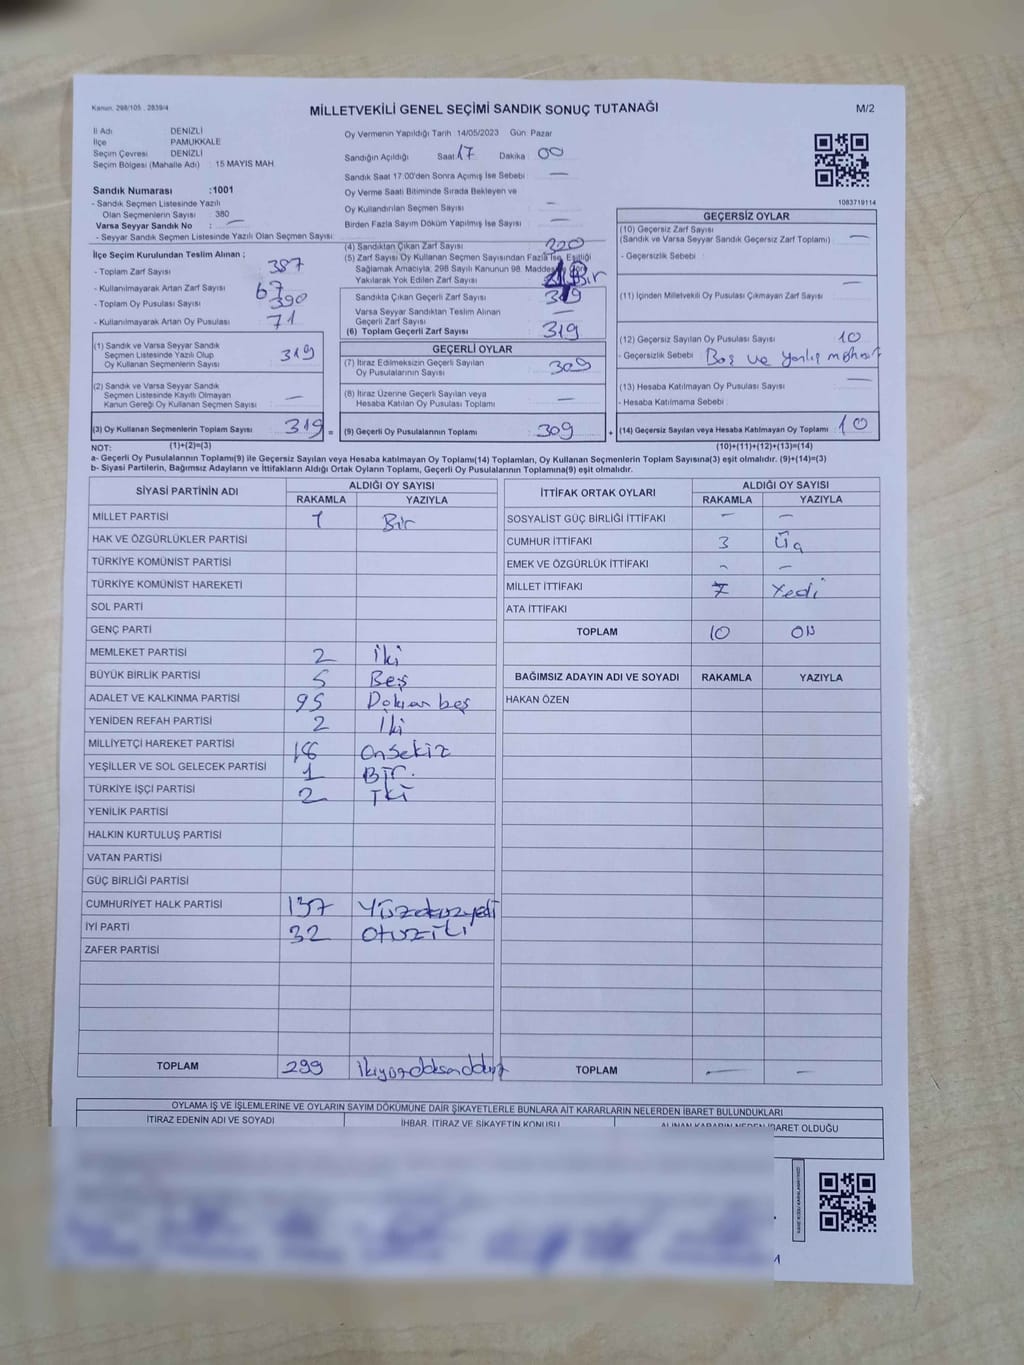 Kanun. 298/105 . 2839/4
MİLLETVEKİLİ GENEL SEÇİMİ SANDIK SONUÇ TUTANAĞI
M/2
İl Adı DENİZLİ
İlçe PAMUKKALE
Seçim Çevresi DENİZLİ
Seçim Bölgesi (Mahalle Adı) : 15 MAYIS MAH.
Sandık Numarası :1001
- Sandık Seçmen Listesinde Yazılı
Olan Seçmenlerin Sayısı : 380
Varsa Seyyar Sandık No : —
- Seyyar Sandık Seçmen Listesinde Yazılı Olan Seçmen Sayısı:
İlçe Seçim Kurulundan Teslim Alınan ;
- Toplam Zarf Sayısı 387
- Kullanılmayarak Artan Zarf Sayısı 67
- Toplam Oy Pusulası Sayısı 390
- Kullanılmayarak Artan Oy Pusulası 71
(1) Sandık ve Varsa Seyyar Sandık
Seçmen Listesinde Yazılı Olup
Oy Kullanan Seçmenlerin Sayısı 319
(2) Sandık ve Varsa Seyyar Sandık
Seçmen Listesinde Kayıtlı Olmayan
Kanun Gereği Oy Kullanan Seçmen Sayısı —
(3) Oy Kullanan Seçmenlerin Toplam Sayısı 319 =
Oy Vermenin Yapıldığı Tarih :14/05/2023 Gün: Pazar
Sandığın Açıldığı Saat 17 Dakika : 00
Sandık Saat 17:00'den Sonra Açımış İse Sebebi : —
Oy Verme Saati Bitiminde Sırada Bekleyen ve
Oy Kullandırılan Seçmen Sayısı : —
Birden Fazla Sayım Döküm Yapılmış İse Sayısı : —
(4) Sandıktan Çıkan Zarf Sayısı 320
(5) Zarf Sayısı Oy Kullanan Seçmen Sayısından Fazla İse, Eşitliği
Sağlamak Amacıyla, 298 Sayılı Kanunun 98. Maddesi
Yakılarak Yok Edilen Zarf Sayısı Bir
Sandıkta Çıkan Geçerli Zarf Sayısı 319
Varsa Seyyar Sandıktan Teslim Alınan
Geçerli Zarf Sayısı —
(6) Toplam Geçerli Zarf Sayısı 319
GEÇERLİ OYLAR
(7) İtiraz Edilmeksizin Geçerli Sayılan
Oy Pusulalarının Sayısı 309
(8) İtiraz Üzerine Geçerli Sayılan veya
Hesaba Katılan Oy Pusulası Toplamı —
(9) Geçerli Oy Pusulalarının Toplamı 309 +
1083719114
GEÇERSİZ OYLAR
(10) Geçersiz Zarf Sayısı
(Sandık ve Varsa Seyyar Sandık Geçersiz Zarf Toplamı) —
- Geçersizlik Sebebi :
(11) İçinden Milletvekili Oy Pusulası Çıkmayan Zarf Sayısı —
(12) Geçersiz Sayılan Oy Pusulası Sayısı 10
- Geçersizlik Sebebi : Boş ve yanlış
(13) Hesaba Katılmayan Oy Pusulası Sayısı —
- Hesaba Katılmama Sebebi :
(14) Geçersiz Sayılan veya Hesaba Katılmayan Oy Toplamı 10
NOT: (1)+(2)=(3) (10)+(11)+(12)+(13)=(14)
a- Geçerli Oy Pusulalarının Toplamı(9) ile Geçersiz Sayılan veya Hesaba katılmayan Oy Toplamı(14) Toplamları, Oy Kullanan Seçmenlerin Toplam Sayısına(3) eşit olmalıdır. (9)+(14)=(3)
b- Siyasi Partilerin, Bağımsız Adayların ve İttifakların Aldığı Ortak Oyların Toplamı, Geçerli Oy Pusulalarının Toplamına(9) eşit olmalıdır.
SİYASİ PARTİNİN ADI ALDIĞI OY SAYISI
RAKAMLA YAZIYLA
MİLLET PARTİSİ 1 Bir
HAK VE ÖZGÜRLÜKLER PARTİSİ
TÜRKİYE KOMÜNİST PARTİSİ
TÜRKİYE KOMÜNİST HAREKETİ
SOL PARTİ
GENÇ PARTİ
MEMLEKET PARTİSİ 2 İki
BÜYÜK BİRLİK PARTİSİ 5 Beş
ADALET VE KALKINMA PARTİSİ 95 Doksan beş
YENİDEN REFAH PARTİSİ 2 İki
MİLLİYETÇİ HAREKET PARTİSİ 18 Onsekiz
YEŞİLLER VE SOL GELECEK PARTİSİ 1 Bir.
TÜRKİYE İŞÇİ PARTİSİ 2 İki
YENİLİK PARTİSİ
HALKIN KURTULUŞ PARTİSİ
VATAN PARTİSİ
GÜÇ BİRLİĞİ PARTİSİ
CUMHURİYET HALK PARTİSİ 137 Yüzotuzyedi
İYİ PARTİ 32 Otuziki
ZAFER PARTİSİ
TOPLAM 299 ikiyüzdoksandokuz
İTTİFAK ORTAK OYLARI ALDIĞI OY SAYISI
RAKAMLA YAZIYLA
SOSYALİST GÜÇ BİRLİĞİ İTTİFAKI — —
CUMHUR İTTİFAKI 3 Üç
EMEK VE ÖZGÜRLÜK İTTİFAKI - -
MİLLET İTTİFAKI 7 Yedi
ATA İTTİFAKI
TOPLAM 10 ON
BAĞIMSIZ ADAYIN ADI VE SOYADI RAKAMLA YAZIYLA
HAKAN ÖZEN
TOPLAM — —
OYLAMA İŞ VE İŞLEMLERİNE VE OYLARIN SAYIM DÖKÜMÜNE DAİR ŞİKAYETLERLE BUNLARA AİT KARARLARIN NELERDEN İBARET BULUNDUKLARI
İTİRAZ EDENİN ADI VE SOYADI İHBAR, İTİRAZ VE ŞİKAYETİN KONUSU ALINAN KARARIN NEDEN İBARET OLDUĞU